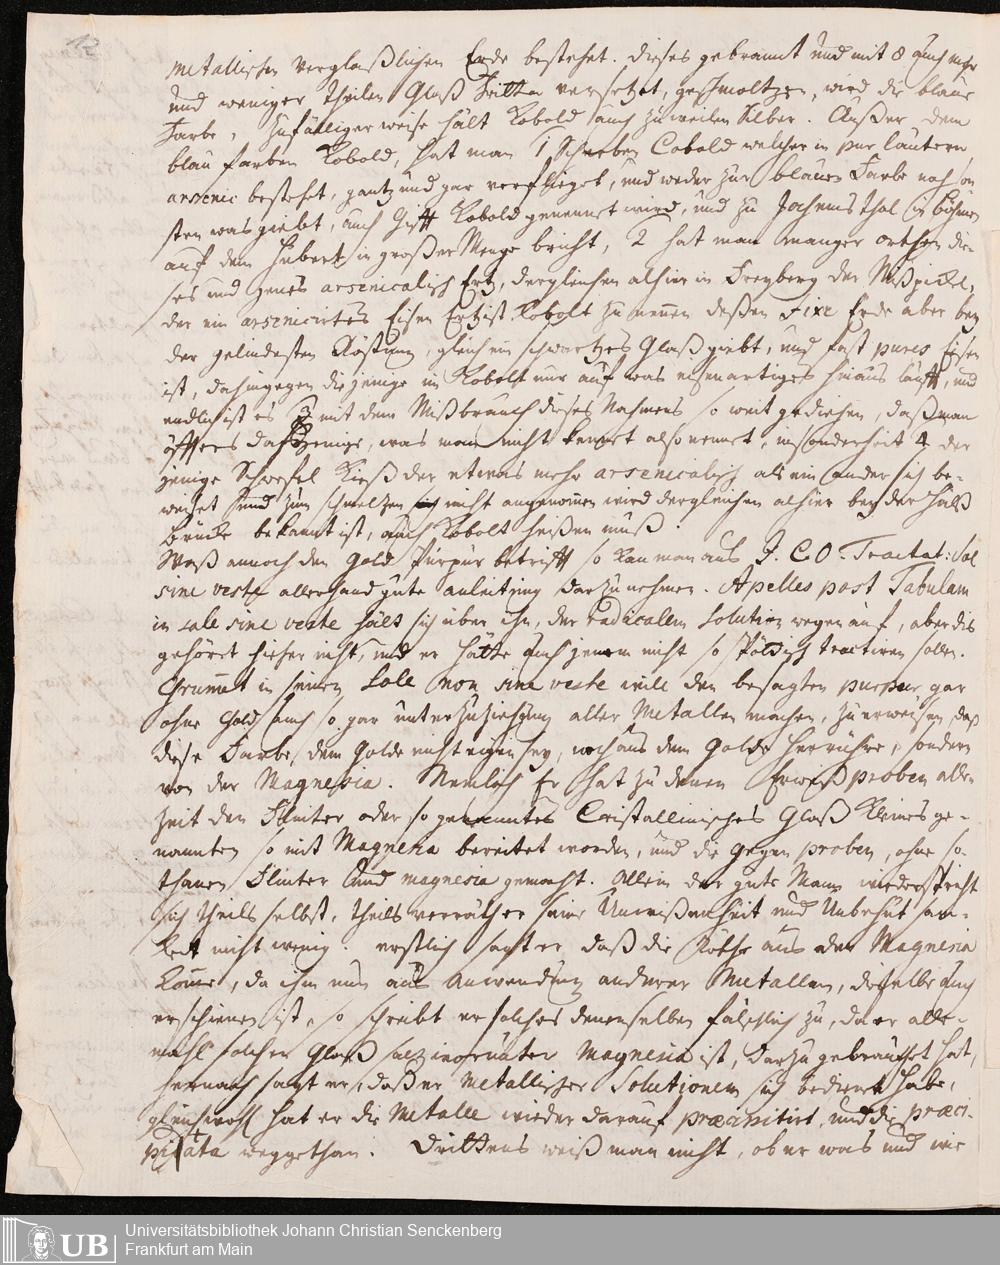 12
metallischen verglaßlichen Erde bestehet. dieses gebrannt und mit 8 auch mehr
und weniger Theilen Glaß Fritta versetzet, geschmoltzen, wird die blaue
Farbe, zufälliger weise hält Kobold auch zuweilen Silber. Außer dem
blau farben Kobold, hat man 1 Scherben Cobold welcher in pur lautern
arsenic bestehet, gantz und gar verflieget, und weder zur blauen Farbe noch son
sten was giebt, auch Gifft Kobold genennet wird, und zu Jochimsthal in Böhmen
auf dem Hubert in großer Menge bricht, 2 hat man manger orthen die-
ses und jenes arsenicalisch Ertz, dergleichen alhier in Freyberg der Mißpickel,
der ein arsenicirtes Eisen Ertz ist Kobolt zu nennen deßen fixe Erde aber bey
der gelindesten Röstung, gleich ein schwartzes Glaß giebt, und fast pures Eisen
ist, dahingegen die jenige im Kobolt nur auf was eisenartiges hinaus läufft, und
endlich ist es 3 mit dem Mißbrauch dieses Nahmens so weit gediehen, daß man
öffters dasjenige, was man nicht kennet also nennet, insonderheit 4 der
jenige Schwefel Kieß der etwas mehr arsenicalisch als ein ander sich be-
weiset und zum schmeltzen nicht angenommen wird dergleichen alhier bey der Halß
brücke bekannt ist, auch Kobolt heißen muß.
Waß annoch den Gold Purpur betrifft so kan man aus J. C. O. Tractat: Sol
sine veste allerhand gute anleitung darzu nehmen. Apelles post Tabulam
in sole sine veste hält sich über ihn, der radicallen Solution wegen auf, aber dis
gehöret hieher nicht, und er hätte auch jenen nicht so spöttisch tractiren sollen.
Grummet in seinen Sole non sine veste will den besagten purpur gar
ohne Gold auch so gar unter zuziehung aller Metallen machen, zu erweisen, daß
diese Farbe, dem Golde nicht eigen sey, noch aus dem Golde herrühre, sondern
von der Magnesia. Nemlich Er hat zu denen Erweiß proben alle
zeit den Flinter oder so genanntes Cristallinisches Glaß Kleines ge-
nannten so mit Magnesia bereitet worden, und die gegen proben, ohne so-
thanen Flinter und magnesia gemacht. Allein der gute Mann wiederspricht
sich theils selbst, theils verräth er seine Unwißenheit und Unbehut sam-
keit nicht wenig. erstlich sagt er, daß die Röthe aus der Magnesia
komme, da ihm nun aus anwendung anderer Metallen, dieselbe auch
erschienen ist, so schreibt er solches denenselben fälschlich zu, da er alle-
mahl solchen Glaß magnesia ist, darzu gebrauchet hat,
hernach sagt er, daß er Metallischer Solutionen sich bedienet habe,
gleichwohl hat er die Metalle wieder darauf præcipitirt, und die præci-
pitata weggethan. Drittens weiß man nicht, ob er was und wie
UB
Universitätsbibliothek Johann Christian Senckenberg
Frankfurt am Main